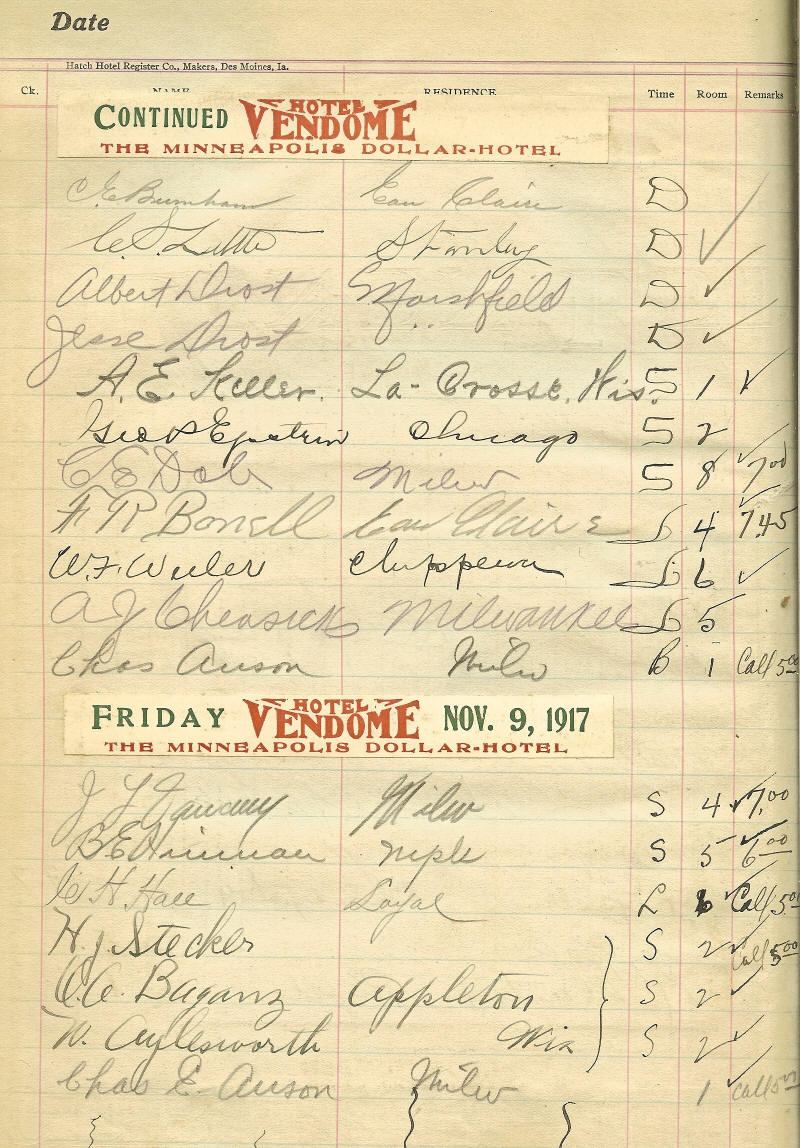 Date
Hatch Hotel Register Co., Makers, Des Moines, Ia.
Ck. NAME RESIDENCE Time Room Remarks
CONTINUED HOTEL VENDOME
THE MINNEAPOLIS DOLLAR-HOTEL
C E Burnham Eau Claire D
C. S. Little Stanley D ✓
Albert Drost Marshfield D ✓
Jesse Drost " D ✓
A. E. Keller. La-Crosse, Wis. S 1 ✓
Geo P Epstein Chicago S 2
C E Milw S 8 ✓ 7.00
F R Bonell Eau Claire L 4 ✓ 7.45
W. F. Chippewa L 6 ✓
A J Milwaukee L 5
Chas Anson Milw B 1 Call 5.00
FRIDAY HOTEL VENDOME NOV. 9, 1917
THE MINNEAPOLIS DOLLAR-HOTEL
J L Milw S 4 ✓ 7.00
B E Hinman mple S 5 ✓ 6.00
C H Hall Loyal L 6 ✓ Call 5.00
H. J. Stecker S 2 ✓ Call 5.00
O. A. Baganz Appleton S 2 ✓
W. Aylesworth Wis S 2 ✓
Chas E. Anson Milw 1 ✓ Call 5.00